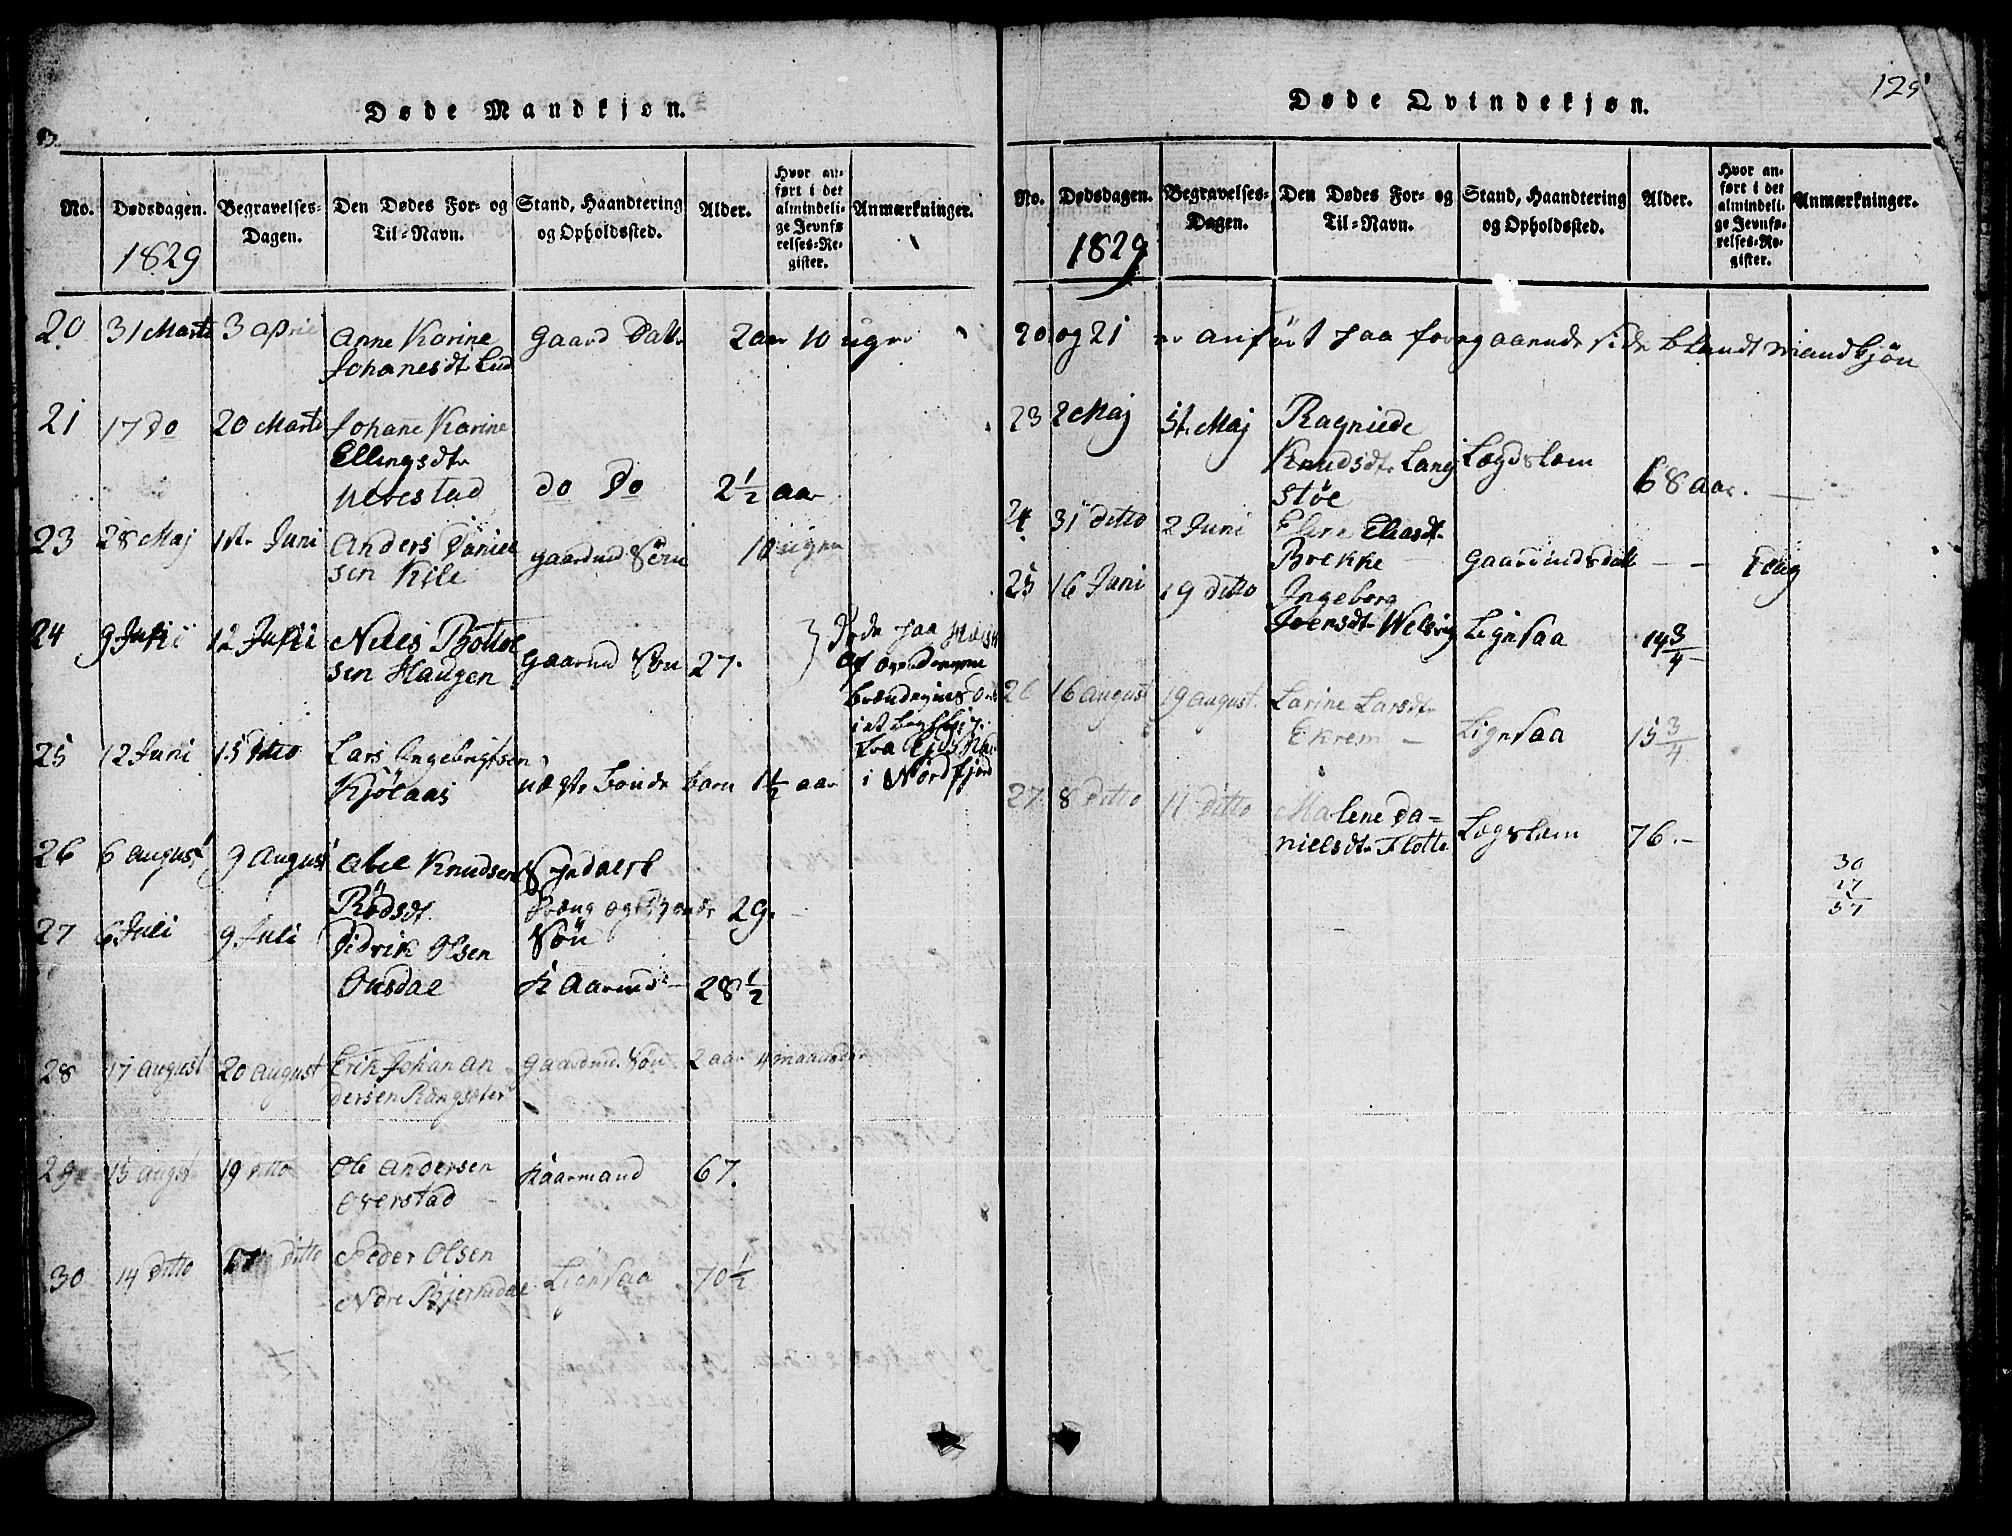 Døde Mandkjøn.
No.
Dødsdagen.
1829
Begravelses-
Dagen.
Den Dødes For- og
Til-Navn.
Stand, Haandtering
og Opholdssted.
Alder.
Hvor an-
ført i det
almindeli-
ge Jevnfø-
relses-Re-
gister.
Anmærkninger.
20 31 Marts 3 april Anne Karine Gaard Datt 2 aar 10 uger
Johanesdt Lud
21 17 do 20 Marts Johane Karine
Ellingsdtr
do Do 2½ aar
23 28 Maj 1st Juni Anders Daniel
sen Kile gaardmd Sön 10 uger
24 9 12 Niels Bottol
sen Haugen gaarmd Sön 27.
Döde paa
af
i Nordfjord
25 12 Juni 15 Ditto Lars Ingebrigtsen
Kjölaas barn 1½ aar
26 6 august 9 August Abel Knudsen
Rödsdt 29.
Sön
27 6 Juli 9 Juli Didrik Olsen
Ousdal Kaarmd 28½
28 17 august 20 august Erik Johan An gaardmd Sön 2 aar 4 maaneder
dersen Rangsæter
29 15 augst 19 ditto Ole Andersen Kaarmand 67.
Överstad
30 14 Ditto 17 Ditto Peder Olsen
Lignsaa 70½
Døde Qvindekjøn.
125
No.
Dødsdagen.
1829
Begravelses-
Dagen.
Den Dødes For- og
Til-Navn.
Stand, Haandtering
og Opholdssted.
Alder.
Hvor an-
ført i det
almindeli-
ge Jevnfø-
relses-Re-
gister.
Anmærkninger.
20 og 21 er anfört paa foregaaende side blandt mandkjön
23 2 Maj Maj Ragniede
Knudsdtr Lang Lægdslem
Stöe 68 aar.
24 31 ditto 2 Juni Eliasdtr
Brekke gaarmdsdatt 1 dag
25 16 Juni 19 ditto Ingeborg
Joensdtr Welsvig Lignsaa 14¾
26 16 august 19 august. Larine Larsdtr
Ekrem Lignsaa 15¾
27 8 ditto 11 ditto Malene Da=
nielsdtr Flötte Lægslem 76.
30
27
57